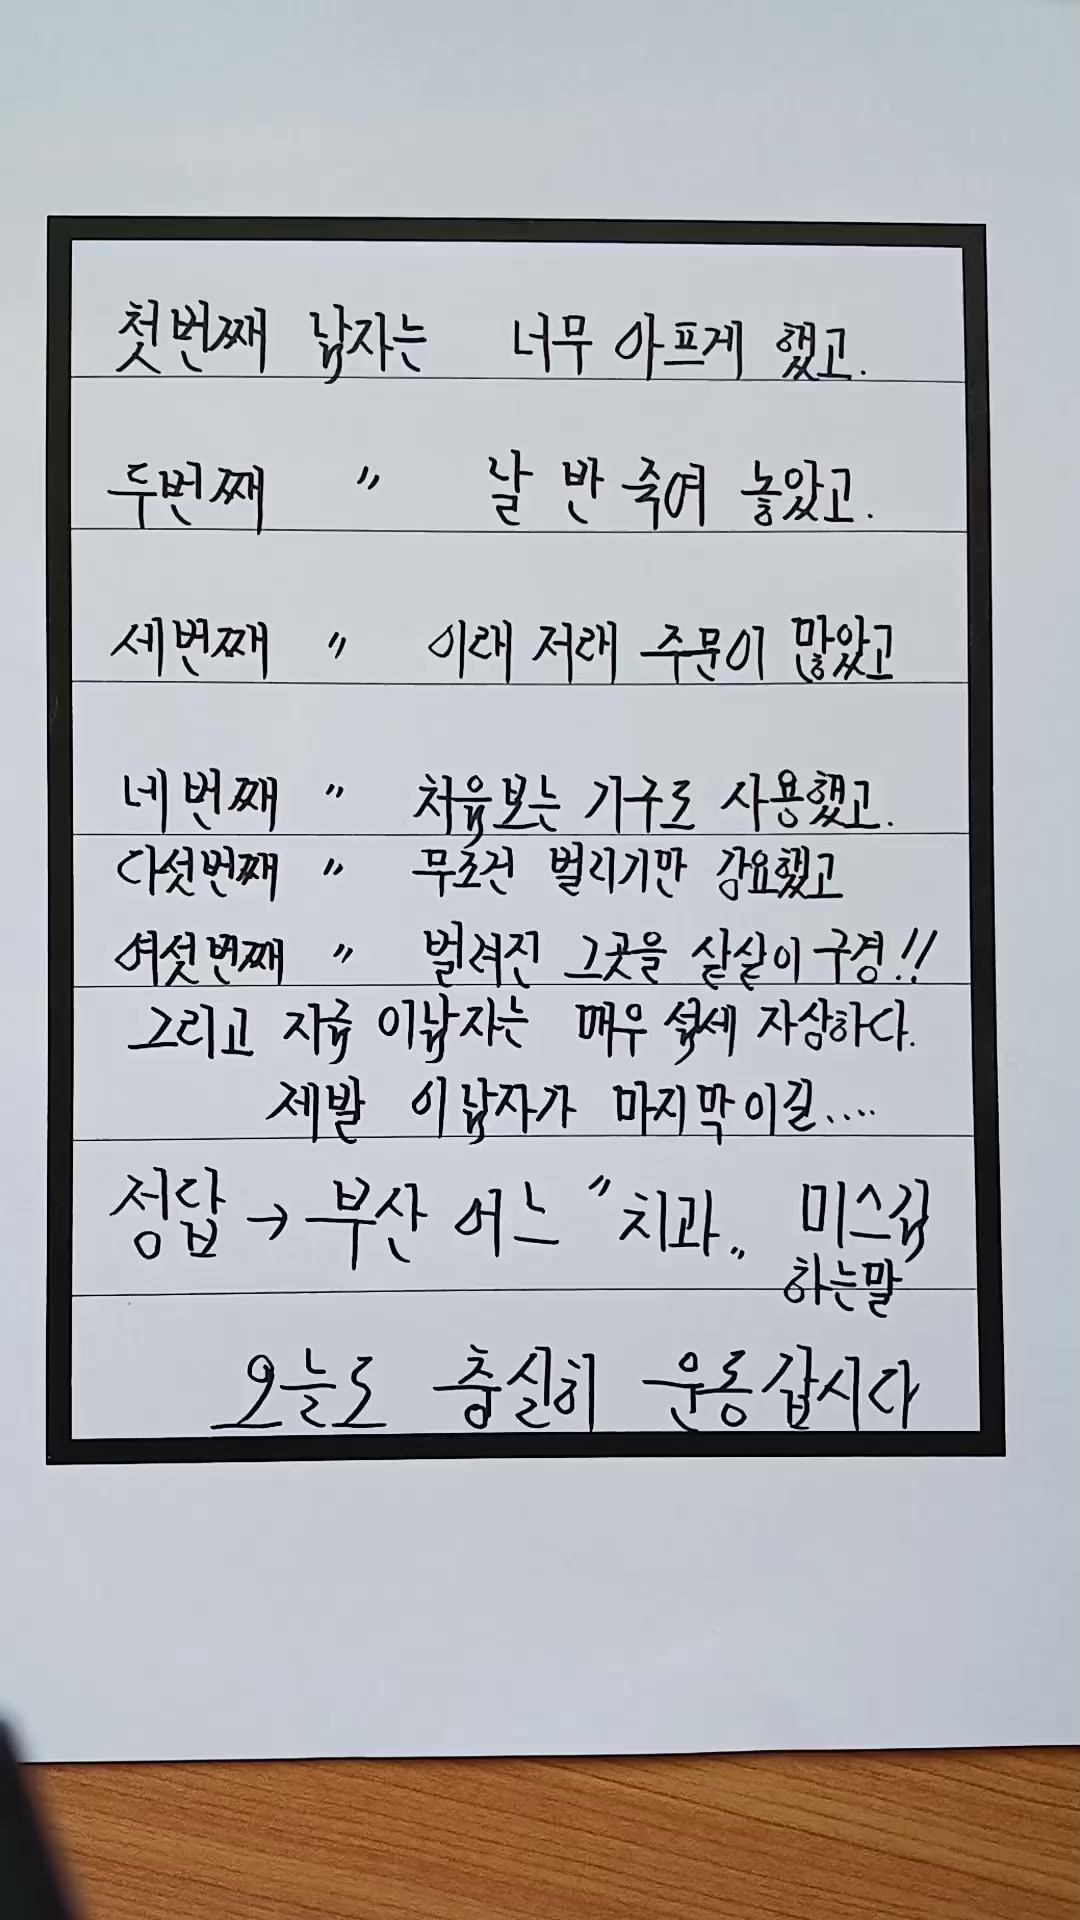 첫번째 남자는 너무 아프게 했고.
두번째 〃 날 반 죽여 놓았고.
세번째 〃 이래 저래 주문이 많았고
네번째 〃 처음보는 기구로 사용했고.
다섯번째 〃 무조건 벌리기만 강요했고
여섯번째 〃 벌려진 그곳을 샅샅이 구경!!
그리고 지금 이남자는 매우 섬세 자상하다.
제발 이남자가 마지막이길....
정답 → 부산 어느 "치과" 미스김
하는말
오늘도 충실히 운동갑시다